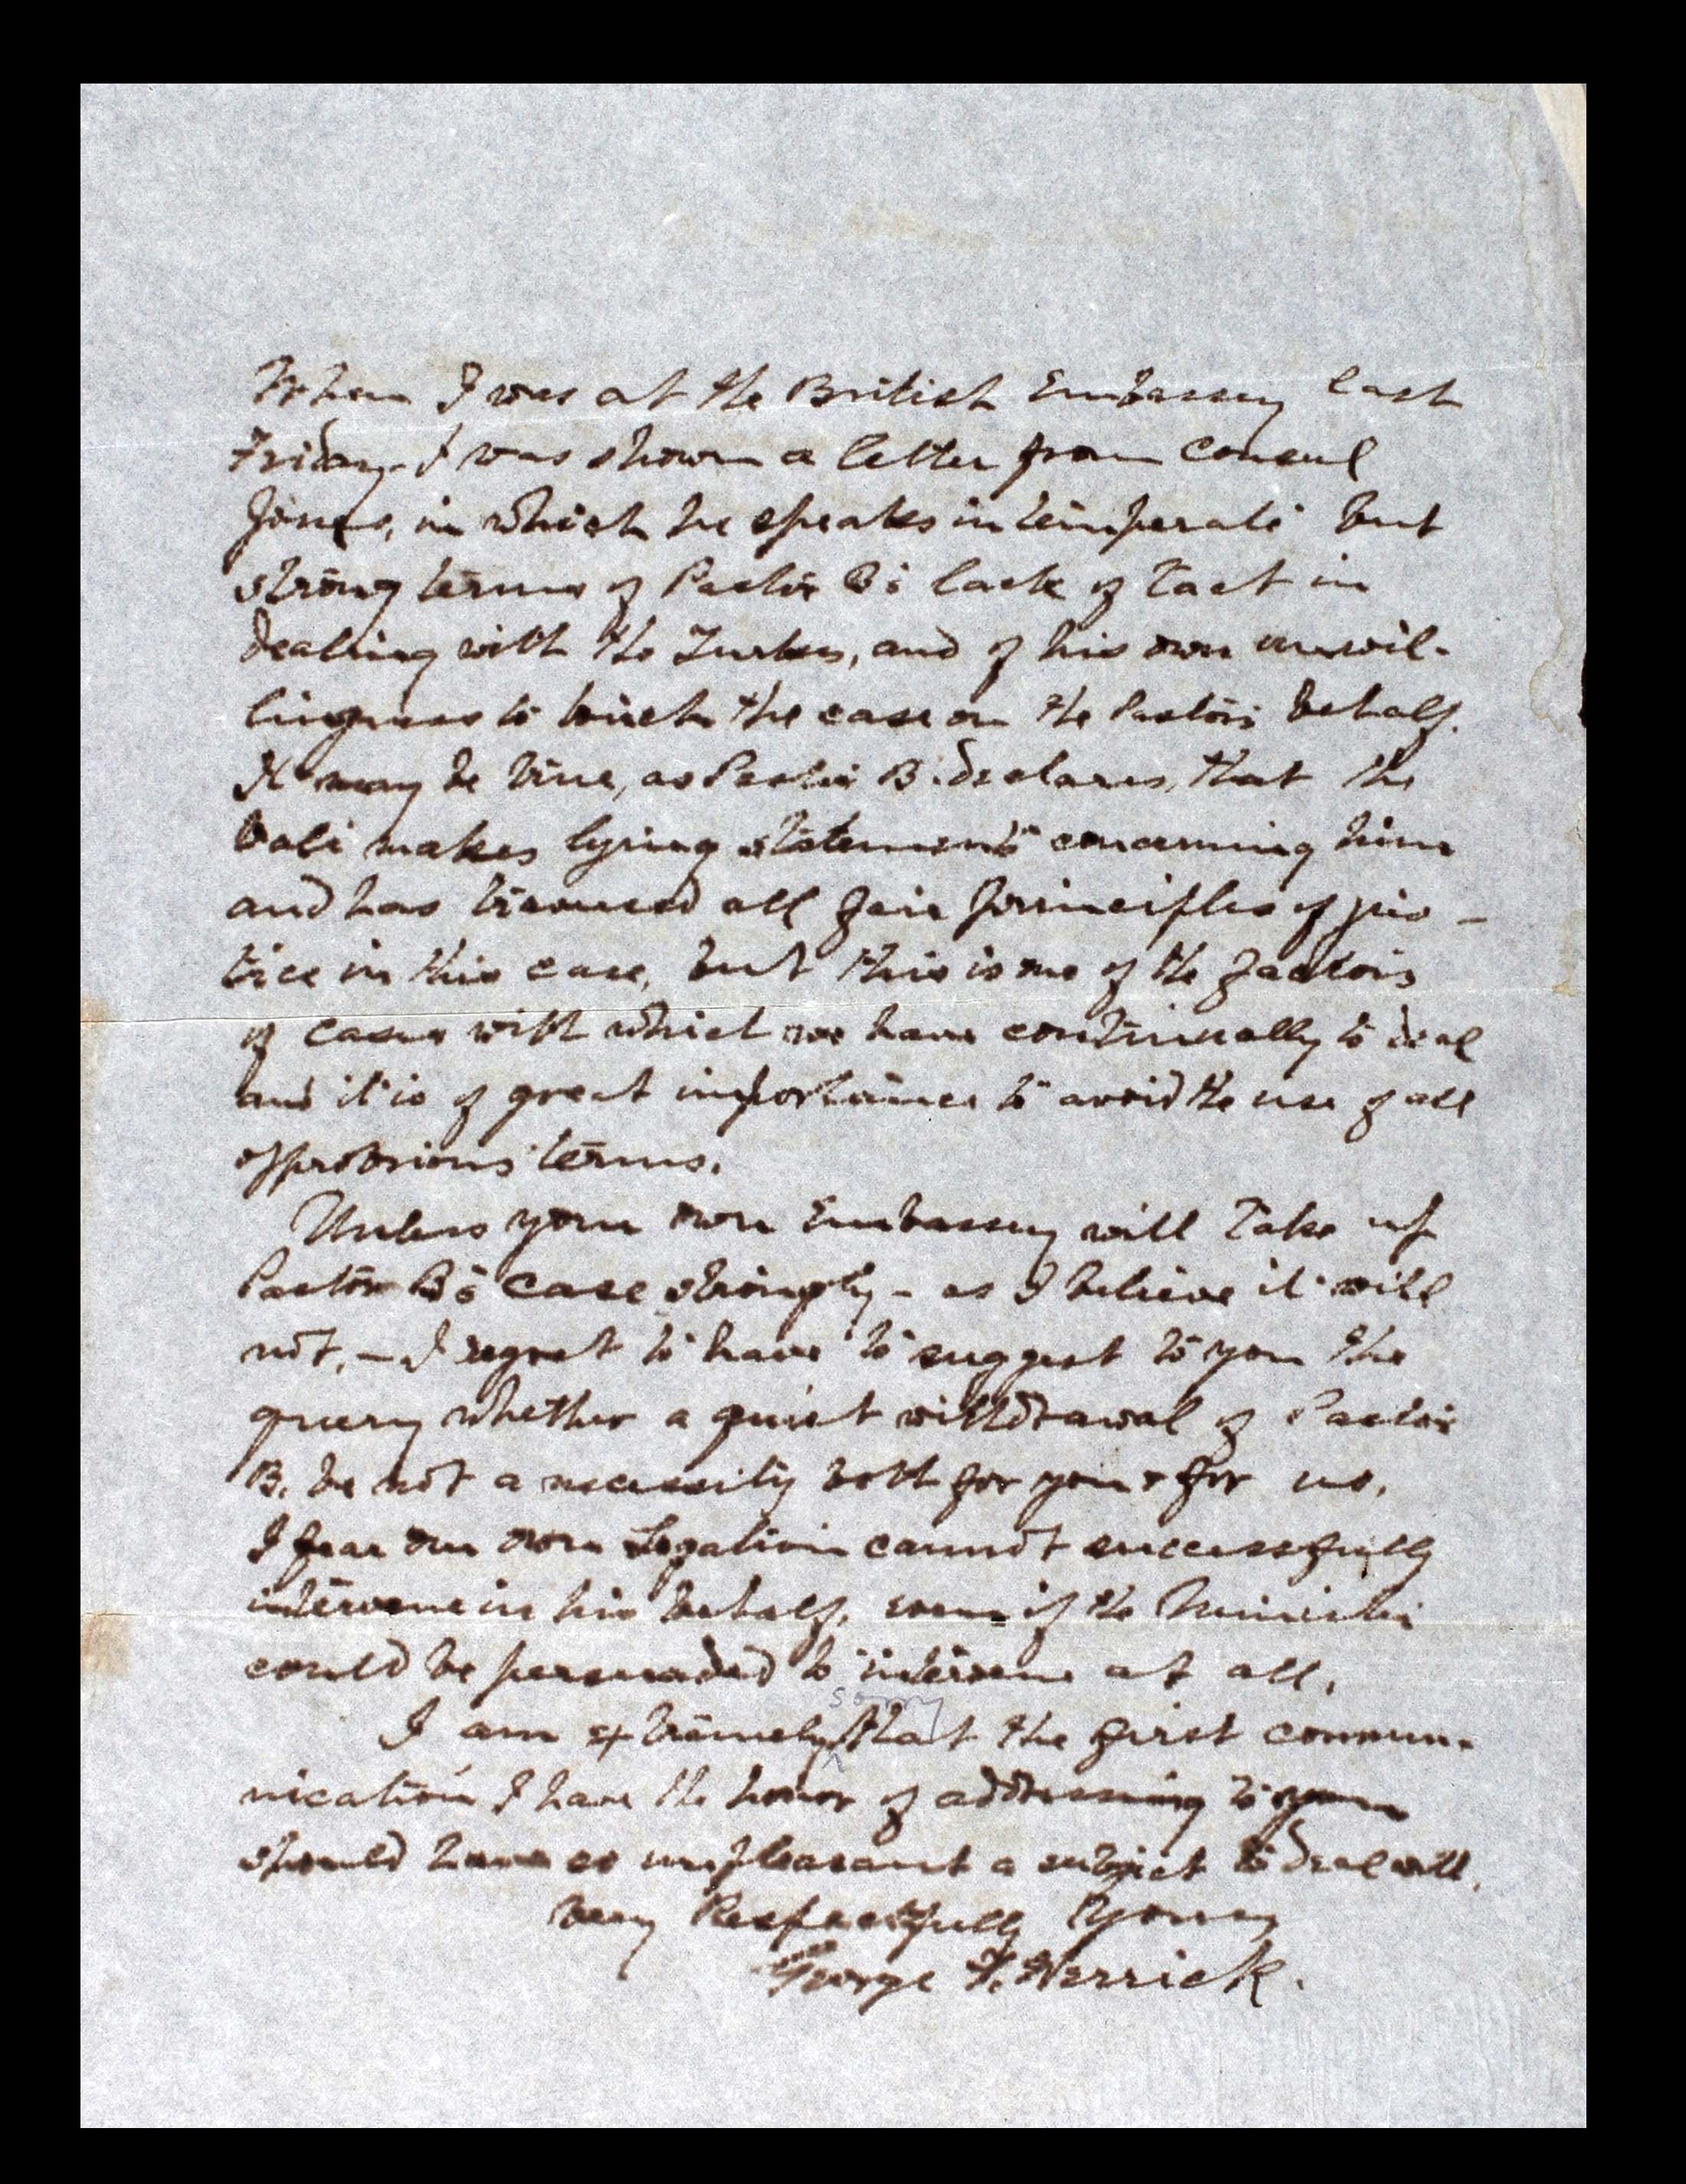 When I was at the British Embassy last
Friday I was shown a letter from Consul
Jones, in which he speaks in temperate but
strong terms of Pastor B's lack of tact in
dealing with the Turks, and of his own unwil-
lingness to touch the case on the Pastor's behalf.
It may be true, as Pastor B. declares, that the
Vali makes lying statements concerning him
and has traversed all fair principles of jus-
tice in this case, but this is one of the factors
of cases with which we have continually to deal
and it is of great importance to avoid the use of all
opprobrious terms.
Unless your own Embassy will take up
Pastor B's case strongly - as I believe it will
not, - I regret to have to suggest to you the
query whether a quiet withdrawal of Pastor
B. be not a necessity both for you & for us.
I fear our own Legation cannot successfully
intervene in his behalf, even if the Minister
could be persuaded to intervene at all.
sorry
I am extremely that the first commu-
nication I have the honor of addressing to you
should have so unpleasant a subject to deal with.
Very Respectfully Yours
George F. Herrick.